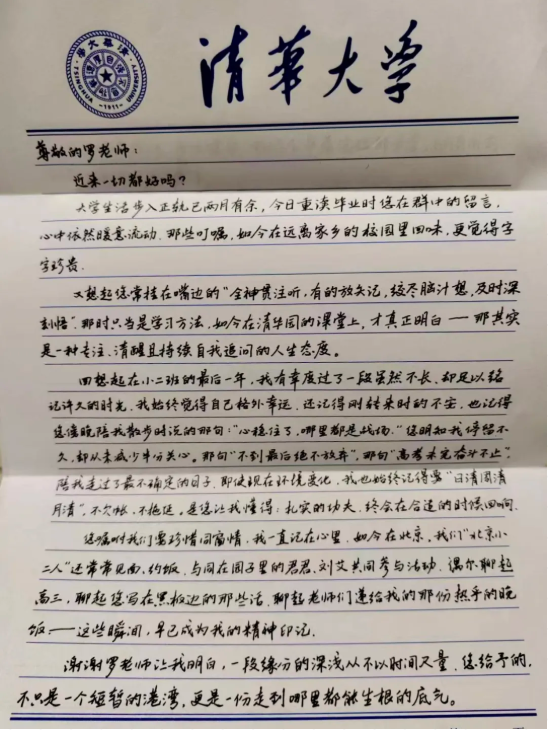 清華大学
TSINGHUA UNIVERSITY
-1911-
尊敬的罗老师:
近来一切都好吗?
大学生活步入正轨已两月有余,今日重读毕业时您在群中的留言,
心中依然暖意流动。那些叮嘱,如今在远离家乡的校园里回味,更觉得字
字珍贵。
又想起您常挂在嘴边的“全神贯注听,有的放矢记,绞尽脑汁想,及时深
刻悟”那时只当是学习方法,如今在清华园的课堂上,才真正明白——那其实
是一种专注、清醒且持续自我追问的人生态度。
回想起在小二班的最后一年,我有幸度过了一段虽然不长、却足以铭
记许久的时光。我始终觉得自己格外幸运,还记得刚转来时的不安,也记得
您傍晚陪我散步时说的那句:“心稳住了,哪里都是战场。”您明知我停留不
久,却从未减少半分关心。那句“不到最后绝不放弃”,那句“高考未完奋斗不止”,
陪我走过了最不确定的日子。即使现在环境变化,我也始终记得要“日清周清
月清”,不欠帐、不拖延,是您让我懂得:扎实的功夫,终会在合适的时候回响。
您嘱咐我们要珍惜同窗情,我一直记在心里。如今在北京,我们“北京小
二人”还常常见面、约饭,与同在园子里的君君、刘艾共同参与活动,偶尔聊起
高三,聊起您写在黑板边的那些话,聊起老师们递给我的那份热乎的晚
饭——这些瞬间,早已成为我的精神印记。
谢谢罗老师让我明白,一段缘份的深浅从不以时间丈量。您给予的,
不只是一个短暂的港湾,更是一份走到哪里都能生根的底气。